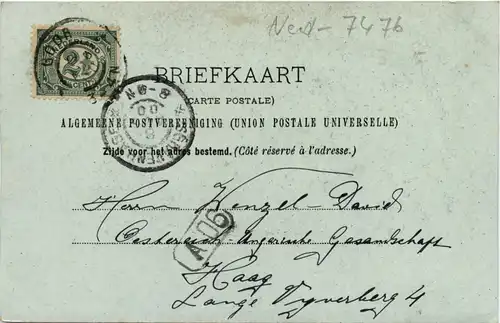 Ned - 7476
GOOR
NEDERLAND
2½
BRIEFKAART
(CARTE POSTALE)
ALGEMEENE POSTVEREENIGING (UNION POSTALE UNIVERSELLE)
Zijde voor het adres bestemd. (Côté réservé à l'adresse.)
8-9N
00
Herrn Wenzel-David
Oesterreich-Ungarische Gesandschaft
Haag
Lange Vyverberg 4